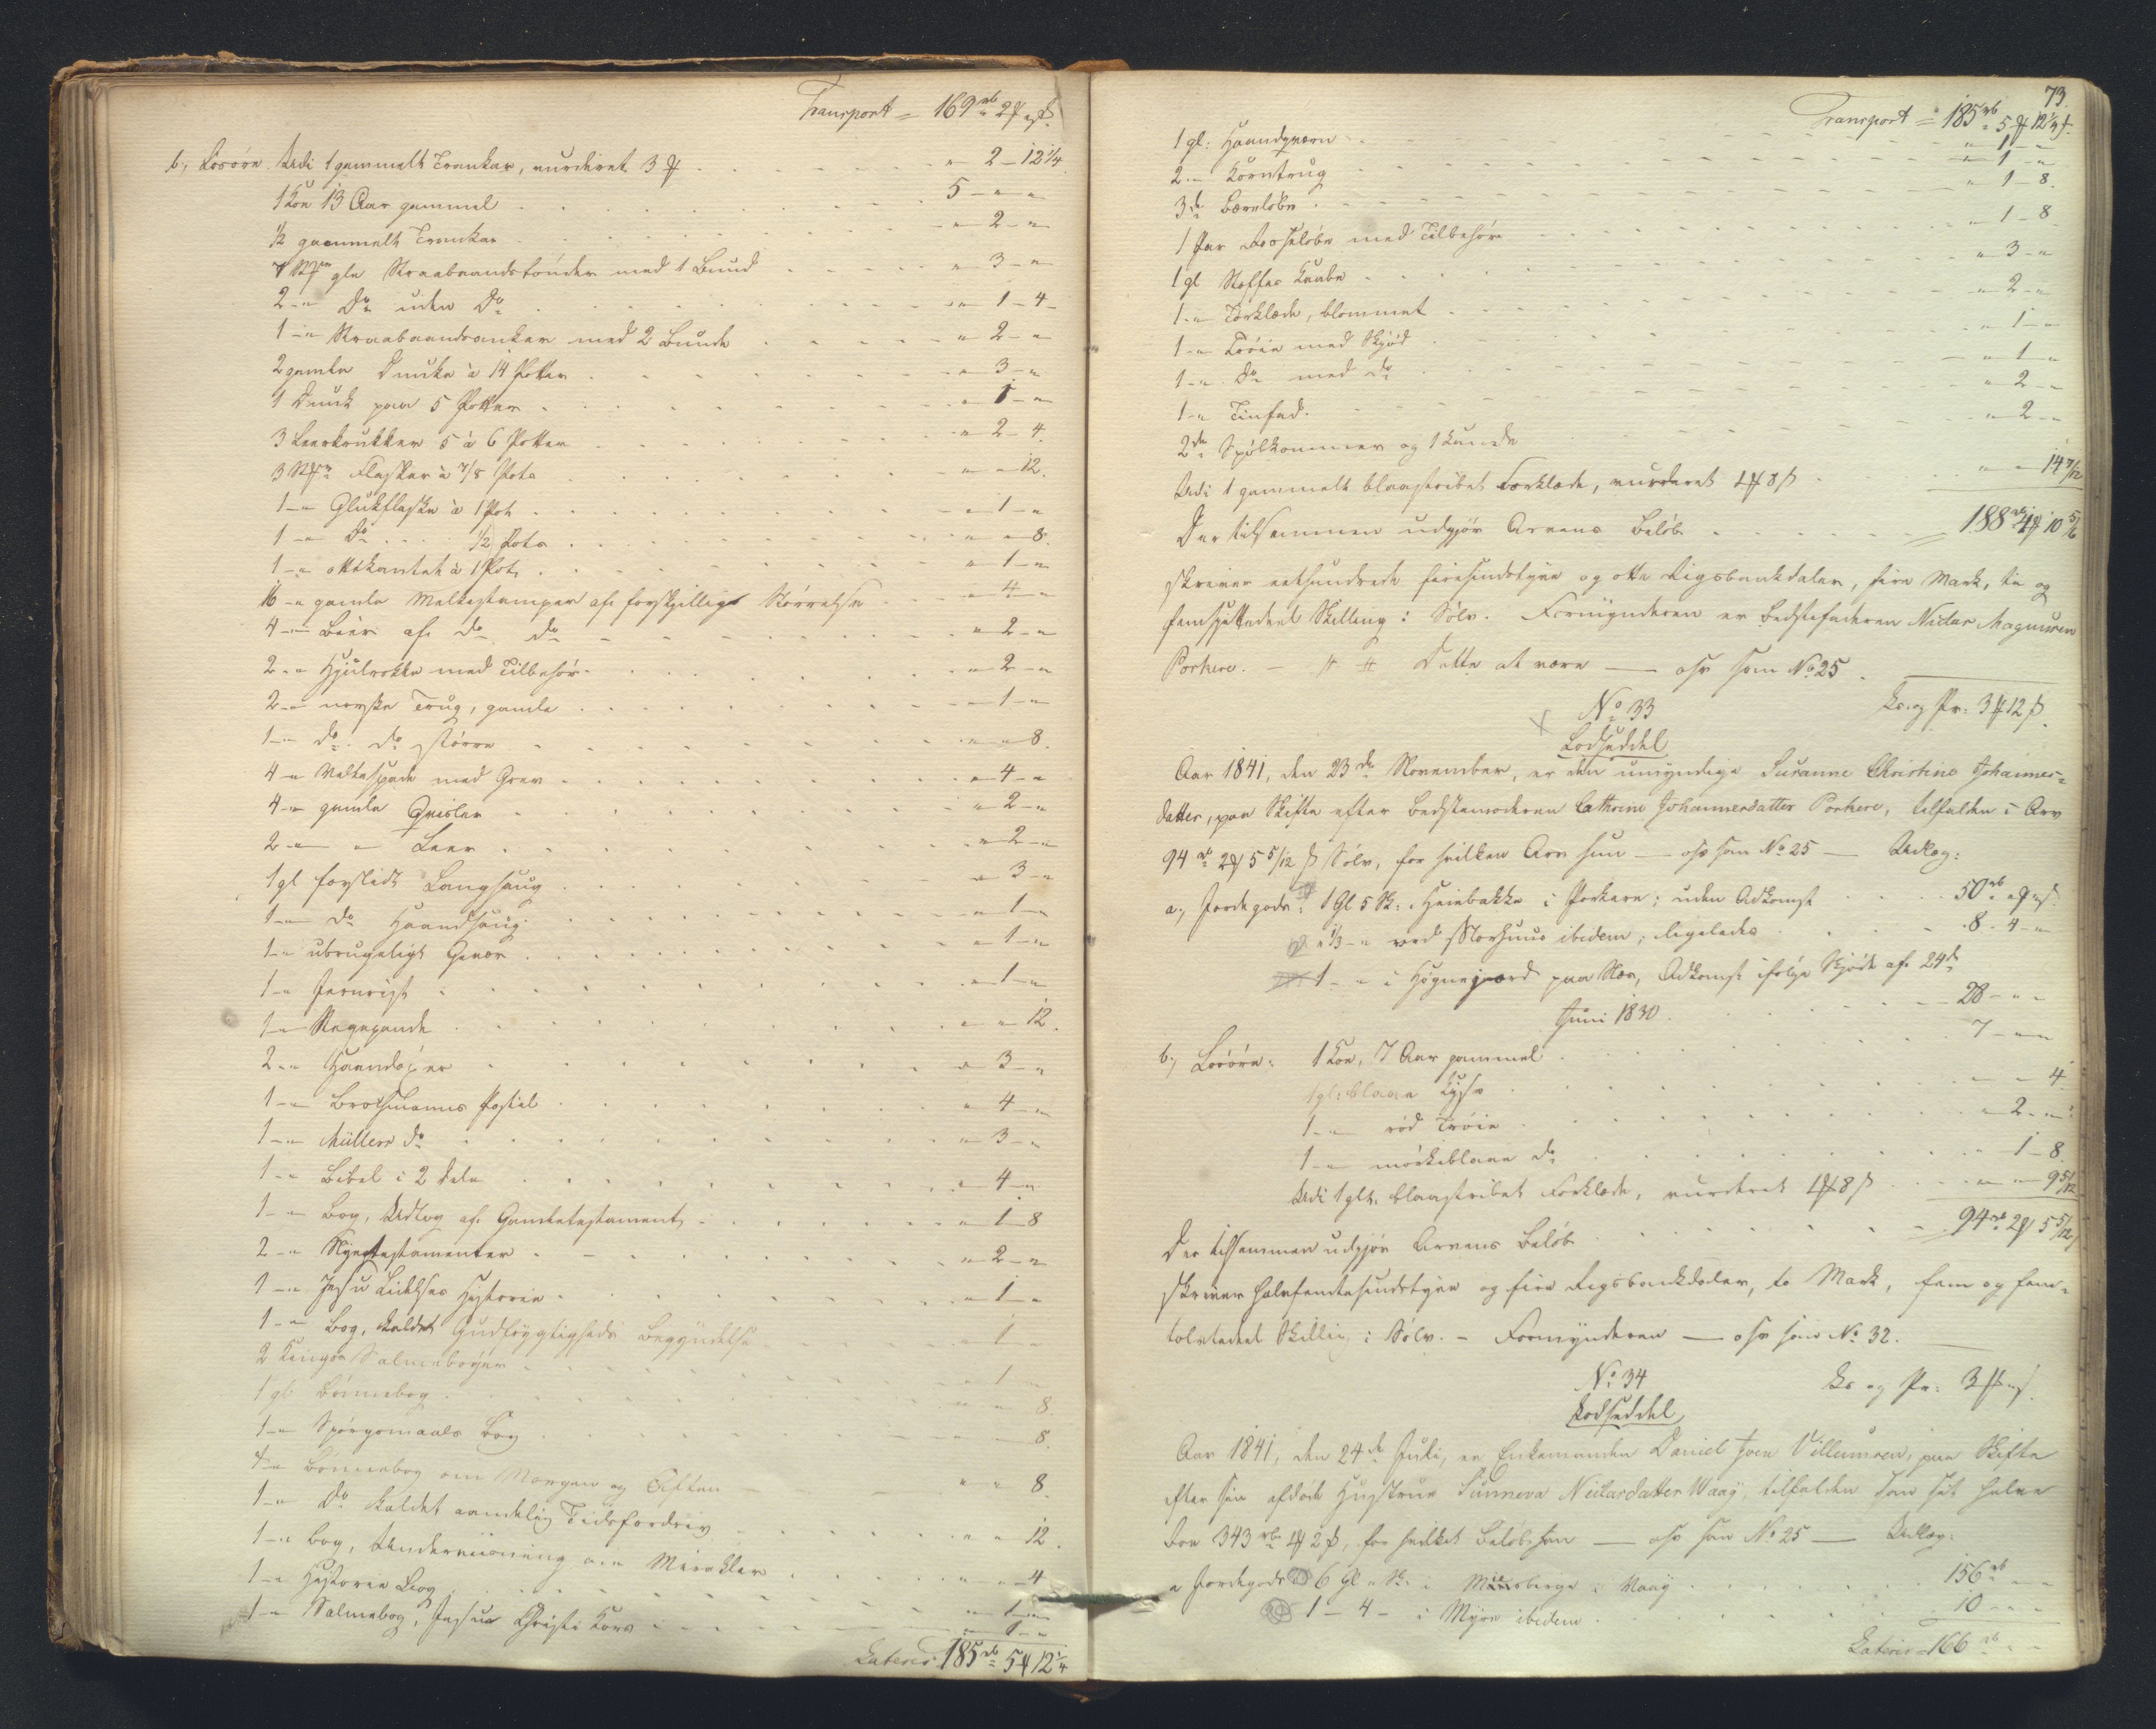 Transport = 169 rb 2 ℳ " ß
b., Løsøre. Udi 1 gammelt Trankar, vurderet 3 ℳ . . . " 2 - 12 1/4
1 Koe 13 Aar gammel . . . 5 - " - "
1/2 gammelt Trankar . . . " 2 - "
7 Stkr gle Straabaandstønder med 1 Bund . . . " 3 - "
2 - " Do uden Do . . . " 1 - 4
1 - " Straabaandsanker med 2 Bunde . . . " 2 - "
2 gamle Dunke à 14 Potter . . . " 3 - "
1 Dunk paa 5 Potter . . . " 1 - "
3 Leerkrukker 5 à 6 Potter . . . " 2 - 4
3 Stkr Flasker à 7/8 Pots . . . " " 12
1 - " Glukflaske à 1 Pot . . . " 1 - "
1 - " Do . . . 1/2 Pots . . . " " 8
1 - " ottekantet à 1 Pot . . . " 1 - "
16 - " gamle Melkestamper af forskjellige Størrelse . . . " 4 - "
4 - " Bøtter af do do . . . " 2 - "
2 - " Hjulrokke med Tilbehør . . . " 2 - "
2 - " norske Trug, gamle . . . " 1 - "
1 - " do do større . . . " " 8
4 - " Veltespade med Grev . . . " 4 - "
4 - " gamle Qvisler . . . " 2 - "
2 - " " Leer . . . " 2 - "
1 gl forslidt Langsaug . . . " 3 - "
1 - " do Haandsaug . . . " 1 - "
1 - " ubrugeligt Gevær . . . " 1 - "
1 - " Jernrist . . . " 1 - "
1 - " Stegepande . . . " " 12
2 - " Haandøxer . . . " 3 - "
1 - " Brochmanns Postil . . . " 4 - "
1 - " Müllers do . . . " 3 - "
1 - " Bibel i 2 Dele . . . " 4 - "
1 - " Bog, Udtog af Gamletestament . . . " 1 - 8
2 - " Nyetestamenter . . . " 2 - "
1 - " Jesu Lidelses Historie . . . " 1 - "
1 - " Bog, kaldet Gudfrygtigheds Begyndelse . . . " 1 - "
2 Kingos Salmebøger . . . " 1 - "
1 gl Bønnebog . . . " " 8
1 - " Spørgsmaals Bog . . . " " 8
1 - " Bønnebog om Morgen og Aften . . . " " 8
1 - " Do kaldet aandelig Tidsfordriv . . . " " 12
1 - " Bog, Underviisning om Mirakler . . . " " 4
1 - " Historie Bog . . . " 1 - "
1 - " Salmebog, Jesus Christi Kors . . . " 1 - "
Lateris 185 rb 5 ℳ 12 1/4
73.
Transport = 185 rb 5 ℳ 12 1/4 ß
1 gl: Haandqværn . . . " 1 - "
2 - " Korntrug . . . " 1 - "
3 de Bæreløbe . . . " 1 - 8
1 Par Rosseløbe med Tilbehør . . . " 1 - 8
1 gl Stoffes Kaabe . . . " 3 - "
1 - " Tørklæde, blommet . . . " 2 - "
1 - " Trøie med Skjød . . . " 1 - "
1 - " Do med do . . . " 1 - "
1 - " Tinfad . . . " 2 - "
2 de Spølkommer og 1 Kande . . . " 2 - "
Udi 1 gammelt blaastribet Forklæde, vurderet 1 ℳ 8 ß . . . " " 14 7/12
Der tilsammen udgjør Arvens Beløb . . . 188 rb 4 ℳ 10 5/6
skriver eethundrede firesindstyve og otte Rigsbankdaler, fire Mark, ti og
femsjettedeel Skilling i Sølv. Formynderen er Bedstefaderen Niclas Magnusen
Porkere. - Dette at være — osv som No 25.
No 33 Ks. og Pr: 3 ℳ 12 ß
Lodseddel
Aar 1841, den 23de November, er den umyndige Susanne Christine Johannes-
datter, paa Skifte efter Bedstemoderen Cathrine Johannesdatter Porkere, tilfalden i Arv
94 rb 2 ℳ 5 5/12 ß Sølv, for hvilken Arv hun — osv som No 25 — Udlæg:
a., Jordegods: 1 Gl 5 Sk: i Heiebakke i Porkere; uden Adkomst . . . 50 rb " ℳ " ß
" 1/3 - " ved Storhuus ibidem; ligeledes . . . 8 - 4 - "
1 - " i Høgnegaard paa Næs, Adkomst ifølge Skjøde af 24de
Juni 1830 . . . 28 - " - "
b., Løsøre: 1 Koe, 7 Aar gammel . . . 7 - " - "
1 gl: blaae Kyse . . . " " 4
1 - " rød Trøie . . . " 2 - "
1 - " mørkeblaae do . . . " 1 - 8
Udi 1 glt. blaastribet Forklæde, vurderet 1 ℳ 8 ß . . . " " 9 5/12
Der tilsammen udgjør Arvens Beløb . . . 94 rb 2 ℳ 5 5/12
skriver halvfemtesindstyve og fire Rigsbankdaler, to Mark, fem og fem-
tolvtedeel Skilling i Sølv. - Formynderen — osv som No 32.
No 34 Ks og Pr: 3 ℳ " ß
Lodseddel
Aar 1841, den 24de Juli, er Enkemanden Daniel Joen Villumsen, paa Skifte
efter sin afdøde Hustrue Sunneva Niclasdatter Waag, tilfalden som sit halve
Boe 343 rb 4 ℳ 2 ß, for hvilket Beløb han — osv som No 25 — Udlæg:
a Jordegods 6 Gl " Sk: i i Waag . . . 156 rb " "
1 - 4 - i Myre ibidem . . . 10 - " - "
Lateris = 166 rb " "